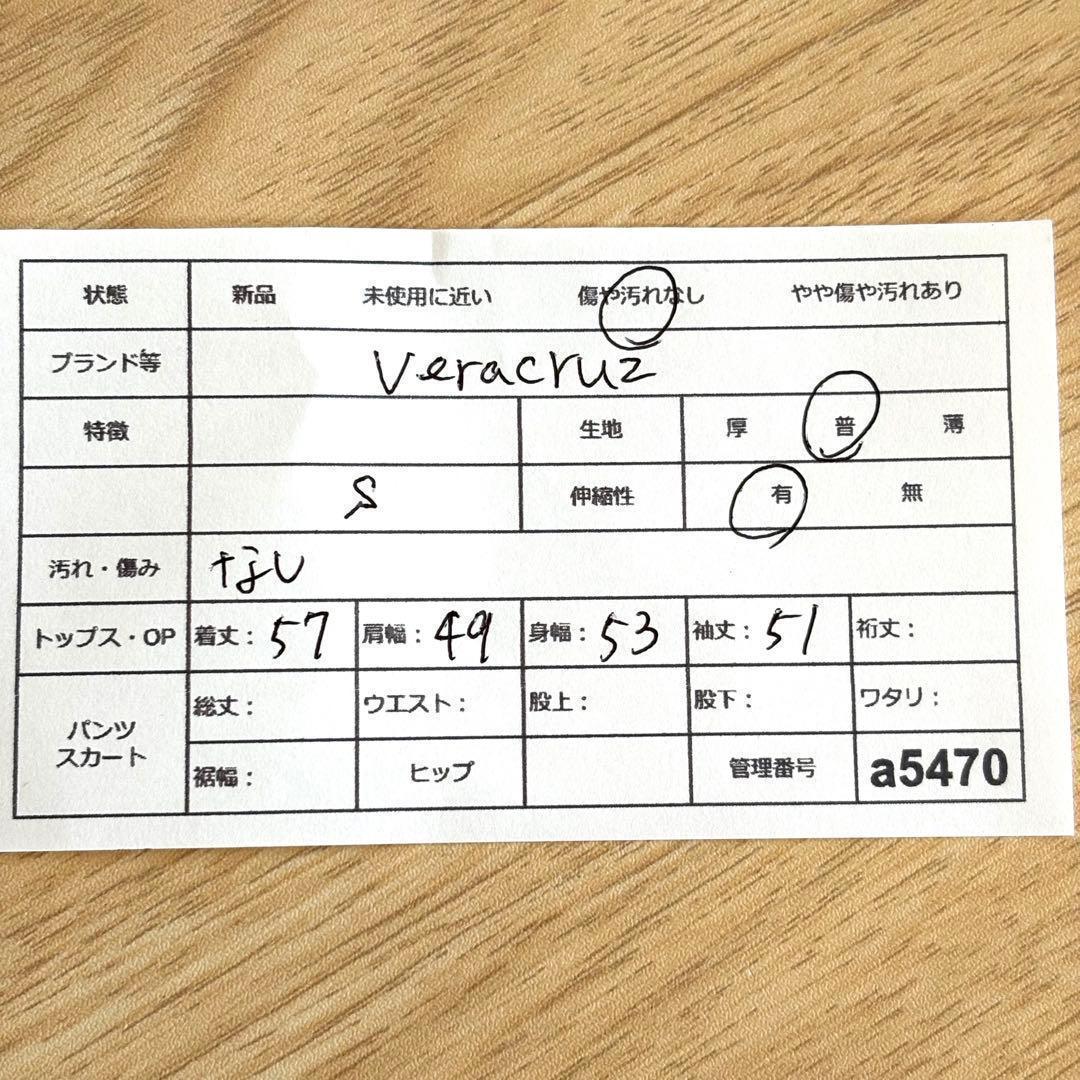 状態 新品 未使用に近い 傷や汚れなし やや傷や汚れあり
ブランド等 Veracruz
特徴 生地 厚 普 薄
S 伸縮性 有 無
汚れ・傷み なし
トップス・OP 着丈：57 肩幅：49 身幅：53 袖丈：51 裄丈：
パンツ スカート 総丈： ウエスト： 股上： 股下： ワタリ：
裾幅： ヒップ 管理番号 a5470